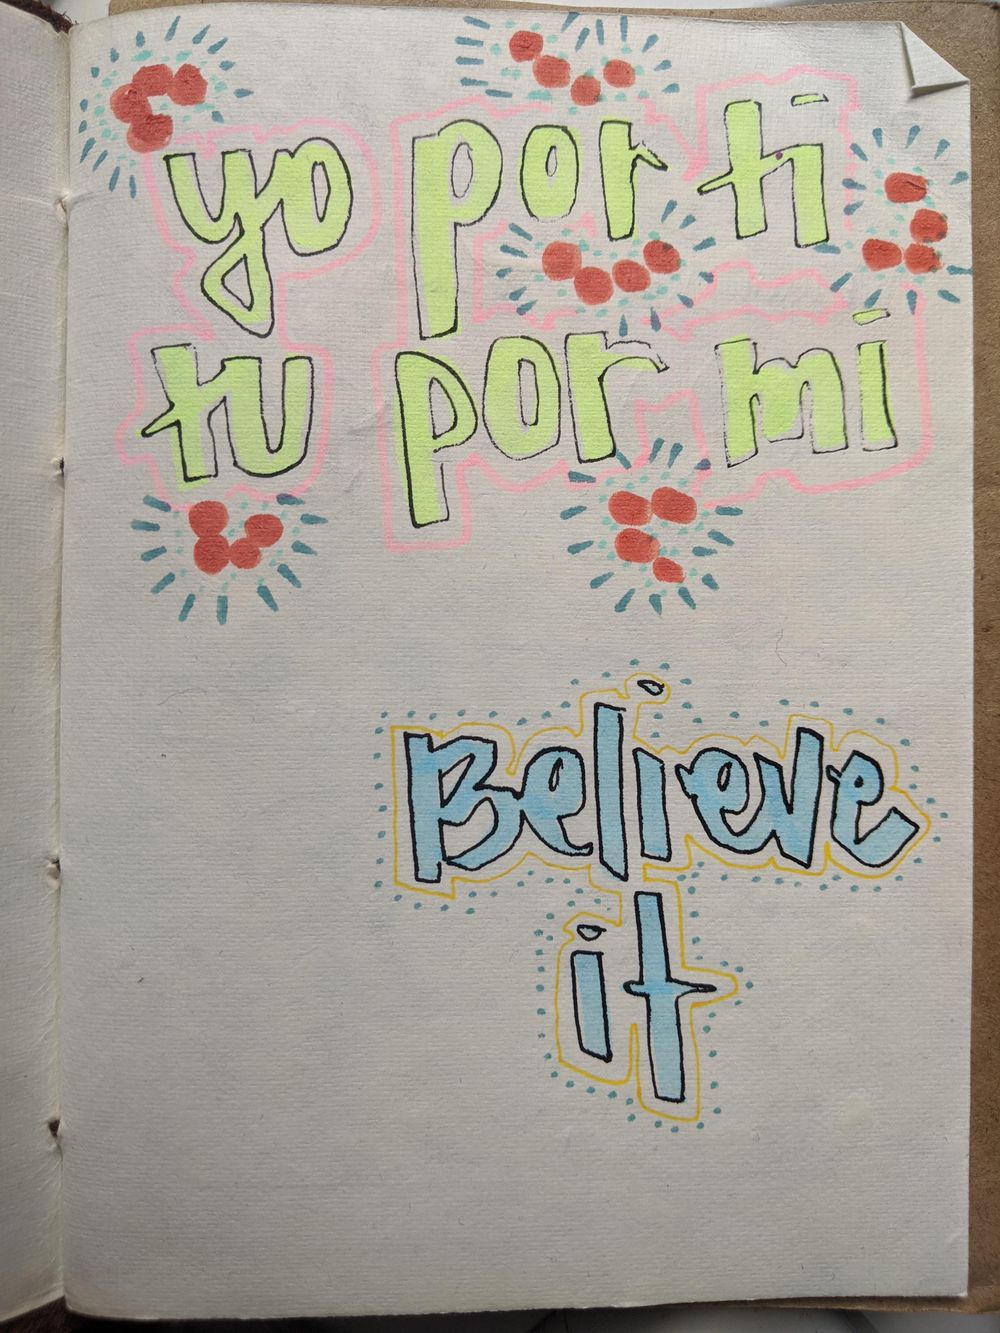 yo por tí
tu por mí
Believe
it